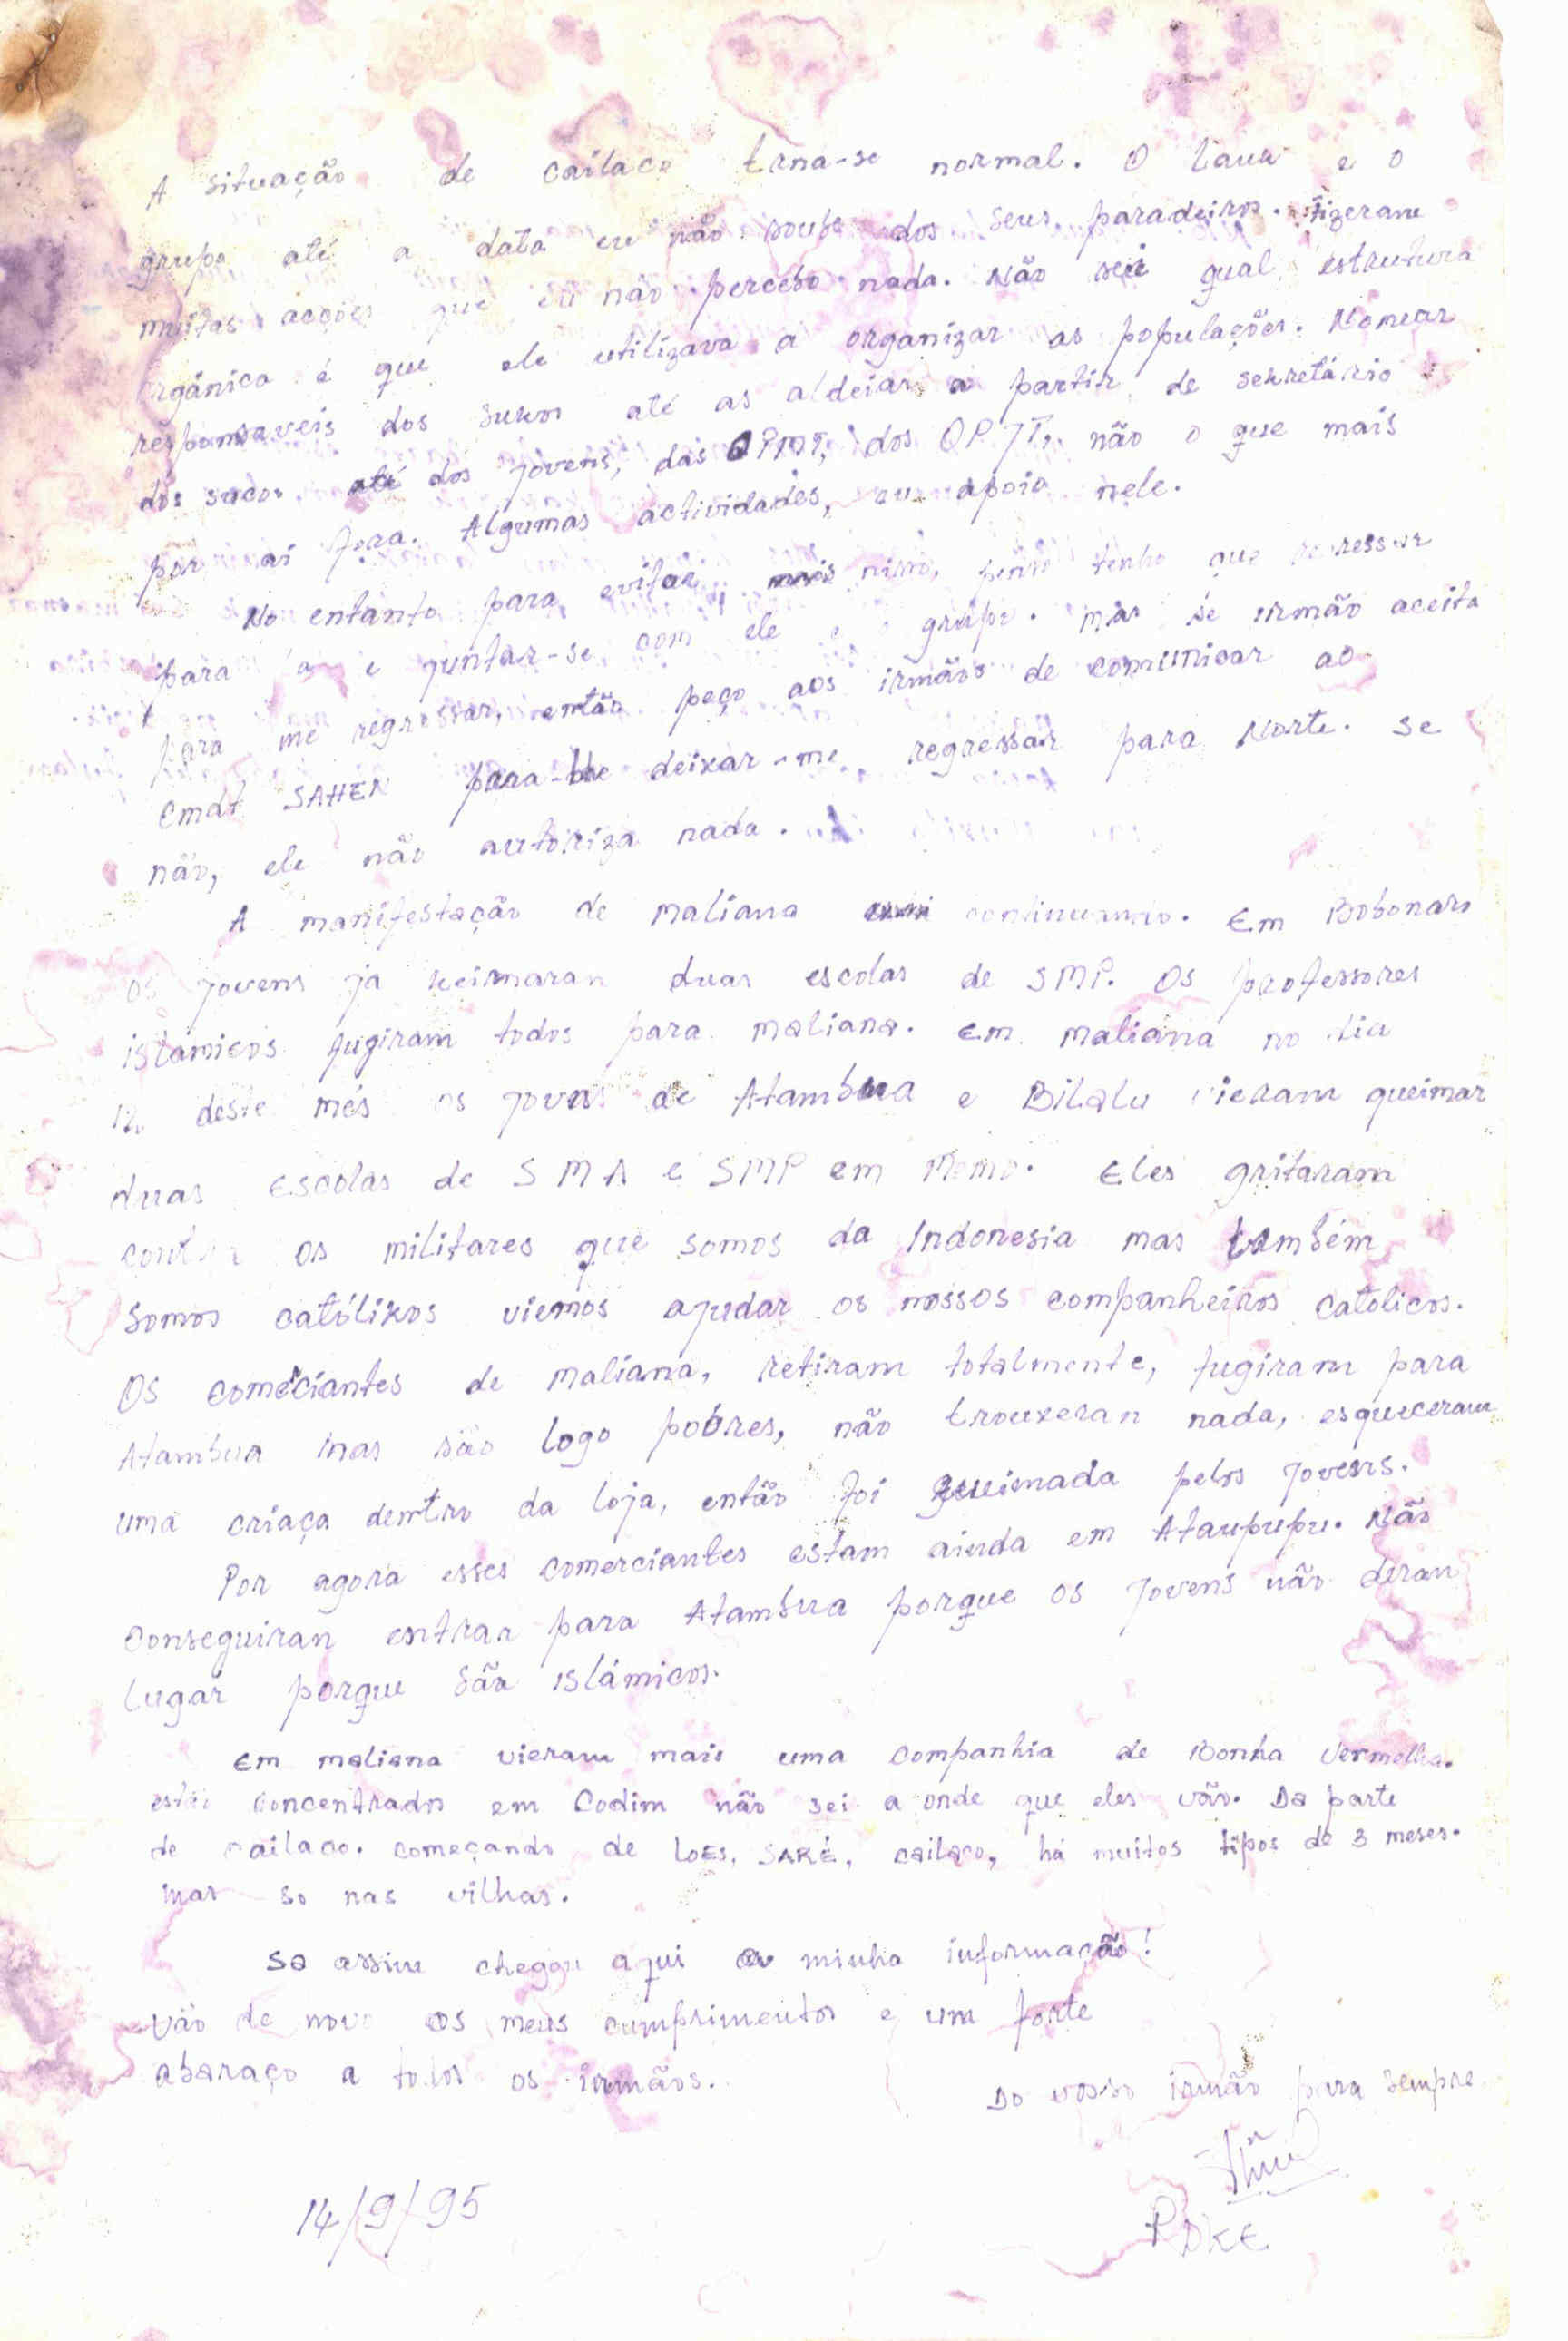 A situação de cailaco trna-se normal. O Laux e o
grupo até a data eu não soube dos seus paradeiros. Fizeram
muitas acções que eu não percebo nada. Não sei qual estrutura
orgânica é que ele utilizava a organizar as populações. Nomear
responsaveis dos sukos até as aldeias a partir de sekretário
dos sucos até dos jovens, das OPMT, dos OPJT, não o que mais
por aí fora. Algumas actividades, eu apoio nele.
No entanto para evitar mais nisso, penso tenho que regressar
para la e juntar-se com ele e o grupo. Mas se irmão aceita
para me regressar, então peço aos irmãos de comunicar ao
Cmdt SAHEN para-lhe deixar-me regressar para Norte. Se
não, ele não autoriza nada.
A manifestação de maliana continuando. Em Bobonaro
os jovens ja keimaran duas escolas de SMP. Os professores
islámicos fugiram todos para maliana. Em maliana no dia
12 deste mês os jovens de Atambua e Bilalu vieram queimar
duas Escolas de SMA e SMP em Memo. Eles gritaram
contra os militares que somos da Indonesia mas também
somos catolikos viemos ajudar os nossos companheiros catolicos.
Os comerciantes de maliana, retiram totalmente, fugiram para
Atambua mas são logo pobres, não trouxeran nada, esqueceram
uma criaça demtro da loja, então foi queimada pelos jovens.
Por agora esses comerciantes estam ainda em Ataupupu. Não
conseguiran entrar para Atambua porque os jovens não deran
lugar porque são islámicos.
Em maliana vieram mais uma companhia de Bonha Vermelha.
estão concentrados em Codim não sei a onde que eles vão. Da parte
de cailaco. começando de LOES, SARÉ, cailaco, há muitos tipos de 3 meses.
mas so nas vilhas.
So assim chegou aqui a minha informação!
vão de novo os meus cumprimentos e um forte
abaraço a todos os irmãos.
Do vosso irmão para sempre
14/9/95